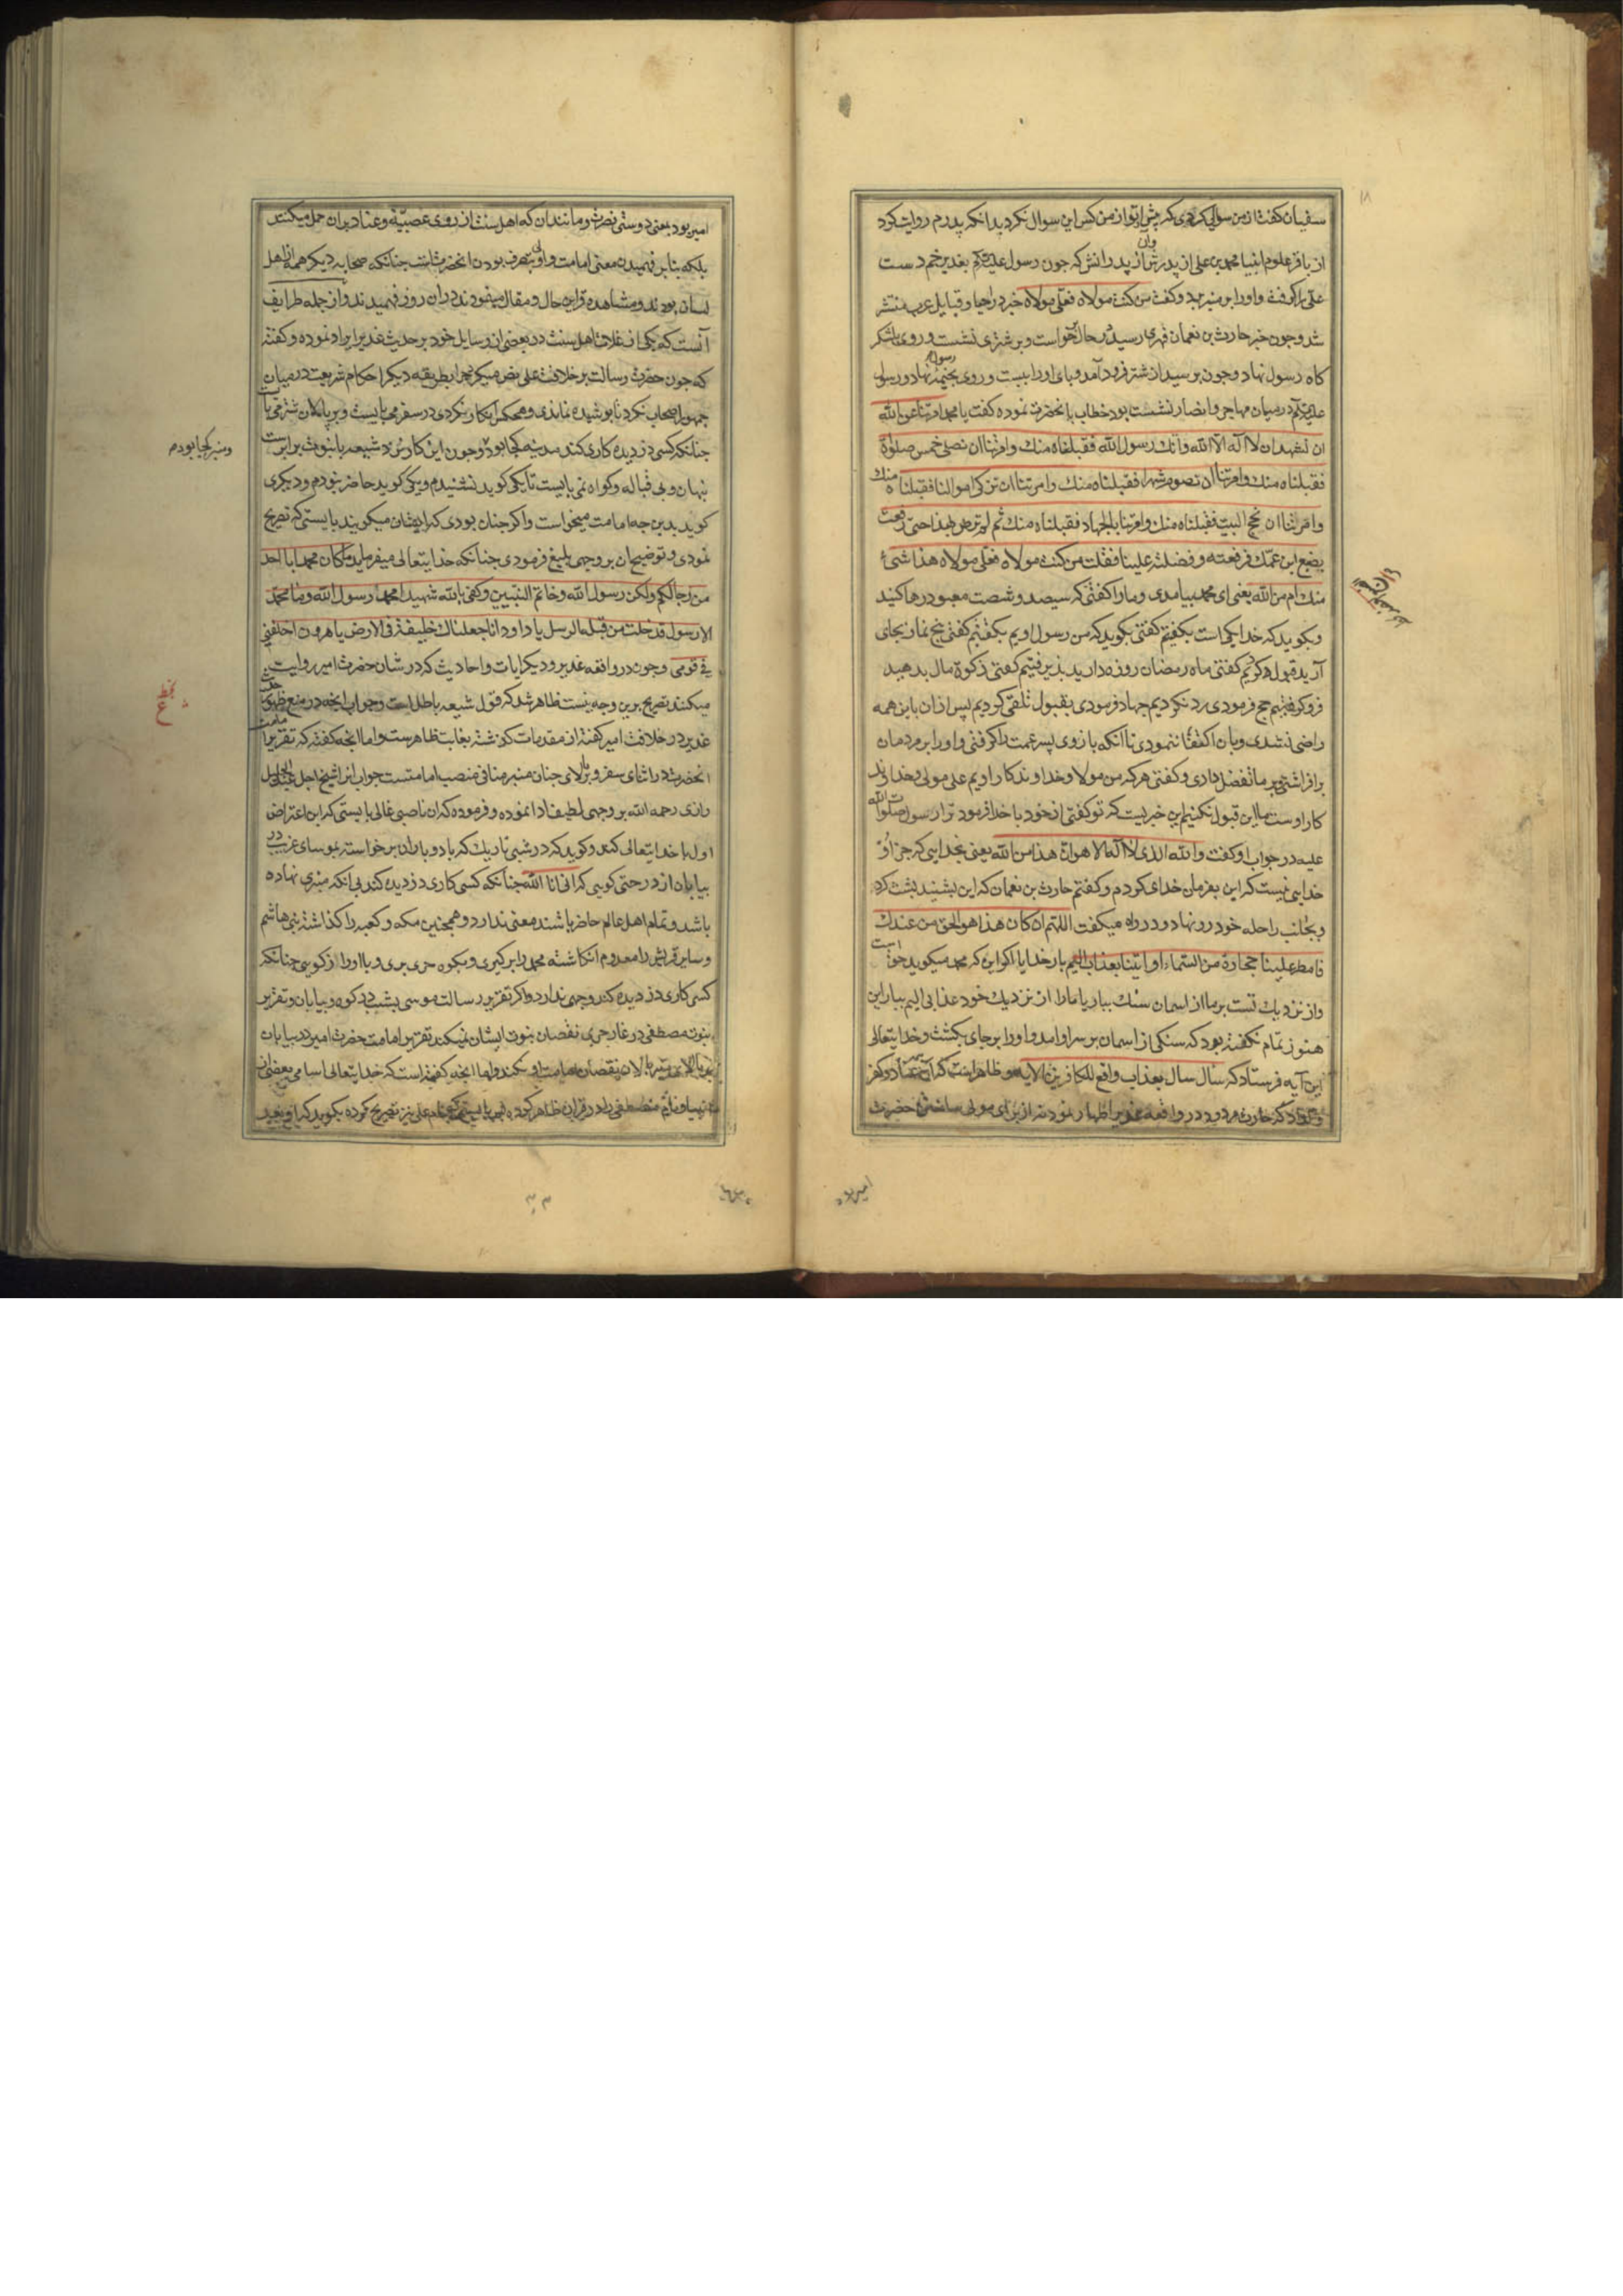 سفیان کفت از من سوالی کردی که پیش از تو از من کس این سوال نکرد بدانکه پدرم روایت کرد
از باقر علوم انبیا محمد بن علی از پدرش و او از پدرانش که چون رسول علیه بغدیر خم دست
علی را کرفته و او را بر منبر برد و کفت من کنت مولاه فعلی مولاه خبر در احیا و قبایل عرب منتشر
شد و چون خبر حارث بن نعمان فهری رسید در حال برخواست و بر شتری نشست و روی بلشکر
کاه رسول نهاد و چون برسید از شتر فرود آمد و پای او را ببست و روی بخیمه رسول نهاد و رسول
در میان مهاجر و انصار نشسته بود خطاب بانحضرت نموده کفت یا محمد امرتنا عن الله
ان نشهد ان لا اله الا الله و انک رسول الله فقبلناه منک و امرتنا ان نصلی خمس صلوة
فقبلناه منک و امرتنا ان نصوم شهرا فقبلناه منک و امرتنا ان نزکی اموالنا فقبلناه منک
و امرتنا ان نحج البیت فقبلناه منک و امرتنا بالجهاد فقبلناه منک ثم لم ترض بهذا حتی رفعت
بضبع ابن عمک فرفعته و فضلته علینا فقلت من کنت مولاه فعلی مولاه هذا شیٔ
منک ام من الله یعنی ای محمد بیامدی و ما را کفتی که سیصد و شصت معبود رها کنید
و بکوید که خدا یکی است بکفتیم کفتی بکوید که من رسول اویم بکفتیم کفتی پنج نماز بجای
آرید قبول کردیم کفتی ماه رمضان روزه دارید پذیرفتیم کفتی زکوة مال بدهید
فرو کرفتیم حج فرمودی رد نکردیم جهاد فرمودی بقبول تلقی کردیم پس از ان باین همه
راضی نشدی و بان اکتفا ننمودی تا انکه بازوی پسر عمت را کرفتی و او را بر مردمان
برافراشتی و بر ما تفضیل دادی و کفتی هر که من مولا و خداوند کار اویم علی مولی و خداوند
کار اوست ما این قبول نکنیم این خبریست که تو کفتی از خود یا خدا فرمود ترا رسول صلوات الله
علیه در جواب او کفت و الله الذی لا اله الا هو ان هذا من الله یعنی بخدایی که جز او
خدایی نیست که این بفرمان خدای کردم و کفتم حارث بن نعمان که این بشنید پشت کرد
و بجانب راحله خود رو نهاد و در راه میکفت اللهم ان کان هذا هو الحق من عندک
فامطر علینا حجارة من السماء او ائتنا بعذاب الیم بار خدایا اکر این که محمد میکوید حق است
و از نزدیک تست بر ما از اسمان سنک ببار یا ما را از نزدیک خود عذابی الیم بیار این
هنوز تمام نکفته بود که سنکی از اسمان بر سر او امد و او را بر جای بکشت و خدایتعالی
این آیه فرستاد که سئال سال بعذاب واقع للکافرین الایه و ظاهر است که این عناد و کفر
که حارث مردود در واقعه غدیر اظهار نمود نه از برای مولی ساختن حضرت
امیر بود
امیر بود بمعنی دوستی و نصرت و مانند ان که اهل سنت از روی عصبیة و عناد بر ان حمل میکنند
بلکه بنابر فهمیدن معنی امامت و اولی بتصرف بودن انحضرت است چنانکه صحابه دیکر همه از اهل
لسان بودند و مشاهده قراین حال و مقال مینمودند در ان روز فهمیدند و از جمله طرایف
آنست که یکی از غلات اهل سنت در بعضی از رسایل خود بر حدیث غدیر ایراد نموده و کفته
که چون حضرت رسالت بر خلافت علی نص میکرد چرا بطریقه دیکر احکام شریعت در میان
جمهور اصحاب نکرد تا پوشیده نماندی و هیچکس انکار نکردی در سفر می بایست و بر پالان شتر می بایست
چنانکه کسی دزدیده کاری کند مدینه کجا بود و چون این کار نزد شیعه با نبوت برابرست
پنهان و بی قباله و کواه نمی بایست تا یکی کوید نشنیدم و یکی کوید حاضر نبودم و دیکری
کوید بدین چه امامت میخواست و اکر چنان بودی که ایشان میکویند بایستی که تصریح
نمودی و توضیح ان بر وجهی بلیغ فرمودی چنانکه خدایتعالی میفرماید ما کان محمد ابا احد
من رجالکم ولکن رسول الله و خاتم النبیین و کفی بالله شهیدا محمد رسول الله و ما محمد
الا رسول قد خلت من قبله الرسل یا داود انا جعلناک خلیفة فی الارض یا هرون اخلفنی
فی قومی و چون در واقعه غدیر و دیکر ایات و احادیث که در شان حضرت امیر روایت
میکنند تصریح برین وجه نیست ظاهر شد که قول شیعه باطل است و جواب انچه در منع ظهور حدیث
غدیر در خلافت امیر کفته از مقدمات کذشته بغایت ظاهرست و اما انچه کفته که تقریر امامت
انحضرت در اثنای سفر و بر بالای چنان منبر منافی منصب امامتست جواب انرا شیخ اجل عبدالجلیل
رازی رحمه الله بر وجهی لطیف ادا نموده و فرموده که ان ناصبی غالی بایستی که این اعتراض
اول با خدایتعالی کند و کوید که در شبی تاریک که باد و باران برخواسته بموسای غریب در
بیابان از درختی کویی که انی انا الله چنانکه کسی کاری دزدیده کند بی انکه منبری نهاده
باشد و تمام اهل عالم حاضر باشند معنی ندارد و همچنین مکه و کعبه را کذاشته بنی هاشم
و سایر قریش را معدوم انکاشته محمد را برکیری و بکوه حری بری و با او راز کویی چنانکه
کسی کاری دزدیده کند وجهی ندارد و اکر تقریر رسالت موسی بشب در کوه و بیابان و تقریر
نبوت مصطفی در غار حری نقصان نبوت ایشان نمیکند تقریر امامت حضرت امیر در بیابان
پالان نقصان امامت او نکند و اما انچه کفته است که خدایتعالی اسامی بعضی از
انبیا و نام مصطفی را در قران ظاهر کرده پس بایستی که نام علی نیز تصریح کرده بکوید که او بعد
و منبر کجا بودم